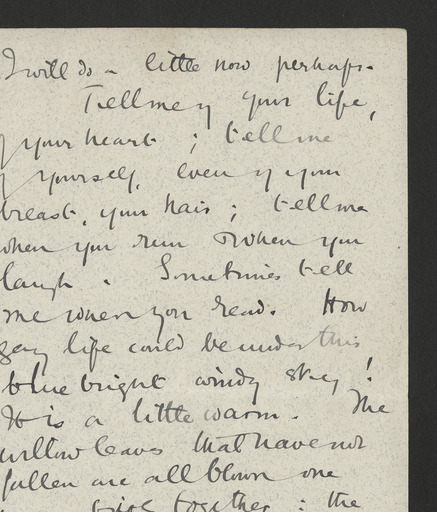 I will do a little now perhaps.
Tell me of your life,
of your heart ; tell me
of yourself, even of your
breast, your hair ; tell me
when you run or when you
laugh . Sometimes tell
me when you read. How
gay life could be under this
blue bright windy sky !
It is a little warm . The
willow leaves that have not
fallen are all blown one
together : the